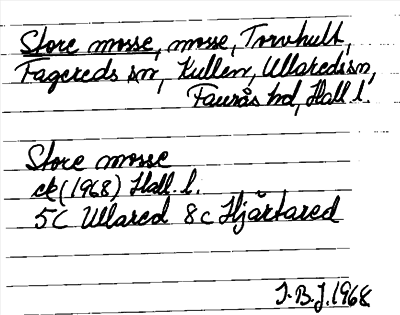 Store mosse, mosse, Torvhult,
Fagereds sn, Kullen, Ullareds sn,
Faurås hd, Hall. l.
Store mosse
ek (1968) Hall. l.
5c Ullared 8c Hjärtared
J.B.J. 1968